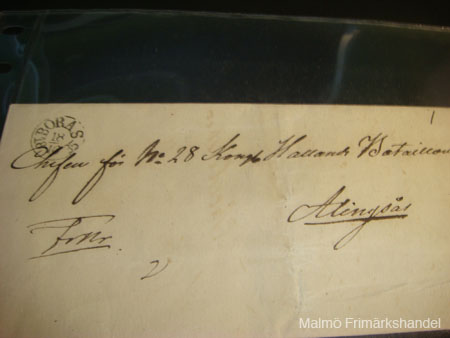 BORÅS
Chefen för No 28 Kongl Hallands Bataillon
Alingsås
Malmö Frimärkshandel